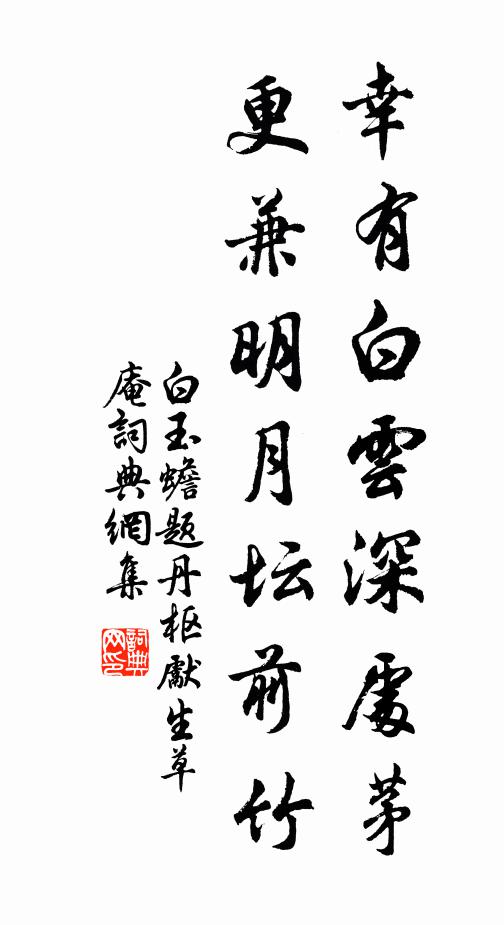 幸有白雲深處茅
更兼明月坛前竹
白玉蟾题丹枢獻生草
庵詞典網集
詞典網印